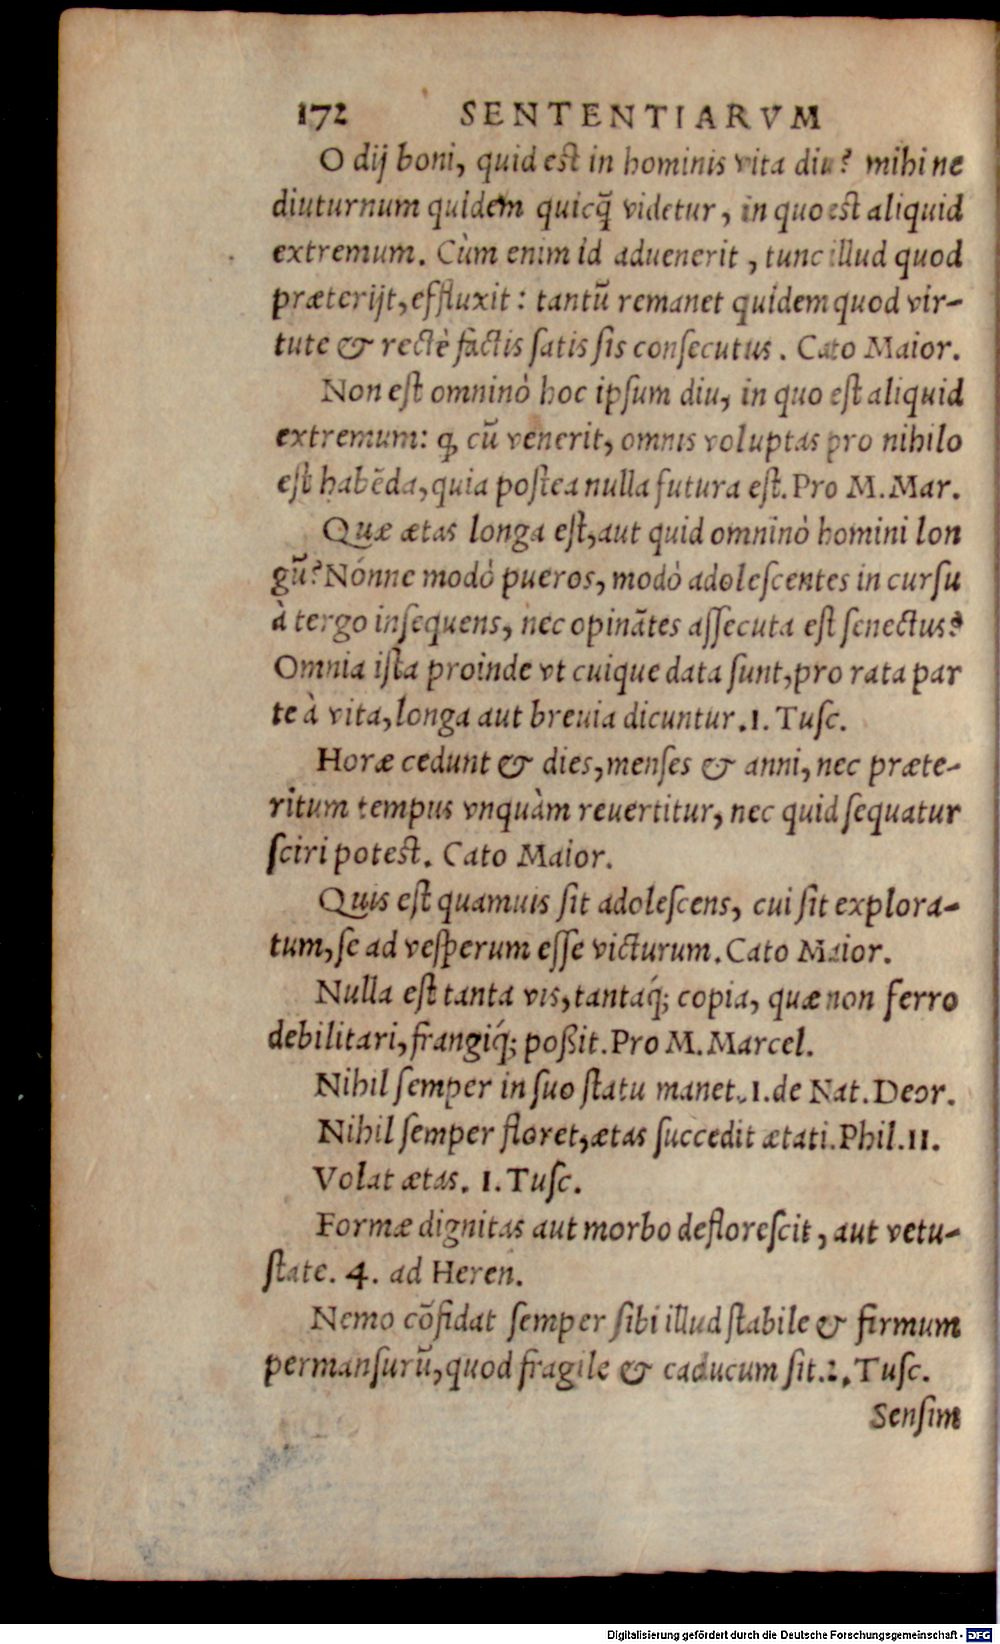 172 SENTENTIARVM
O dij boni, quid est in hominis vita diu? mihi ne
diuturnum quidem quicq̃ videtur, in quo est aliquid
extremum. Cùm enim id aduenerit, tunc illud quod
præterijt, effluxit: tantũ remanet quidem quod vir-
tute & rectè factis satis sis consecutus. Cato Maior.
Non est omninò hoc ipsum diu, in quo est aliquid
extremum: ꝗ cũ venerit, omnis voluptas pro nihilo
est habẽda, quia postea nulla futura est. Pro M. Mar.
Quæ ætas longa est, aut quid omninò homini lon
gũ? Nónne modò pueros, modò adolescentes in cursu
à tergo insequens, nec opinãtes assecuta est senectus?
Omnia ista proinde vt cuique data sunt, pro rata par
te à vita, longa aut breuia dicuntur. 1. Tusc.
Horæ cedunt & dies, menses & anni, nec præte-
ritum tempus vnquàm reuertitur, nec quid sequatur
sciri potest. Cato Maior.
Quis est quamuis sit adolescens, cui sit explora-
tum, se ad vesperum esse victurum. Cato Maior.
Nulla est tanta vis, tantaq́; copia, quæ non ferro
debilitari, frangiq́; poßit. Pro M. Marcel.
Nihil semper in suo statu manet. 1. de Nat. Deor.
Nihil semper floret, ætas succedit ætati. Phil. 11.
Volat ætas. 1. Tusc.
Formæ dignitas aut morbo deflorescit, aut vetu-
state. 4. ad Heren.
Nemo cõfidat semper sibi illud stabile & firmum
permansurũ, quod fragile & caducum sit. 2. Tusc.
Sensim
Digitalisierung gefördert durch die Deutsche Forschungsgemeinschaft - DFG